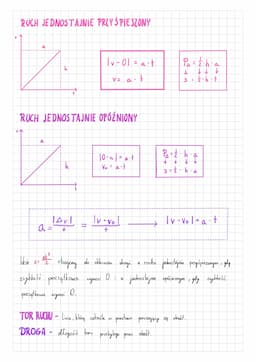 RUCH JEDNOSTAJNIE PRZYŚPIESZONY
a
h
|v-0| = a·t
v = a·t
P△ = ½·h·a
s = ½·t
RUCH JEDNOSTAJNIE OPÓŹNIONY
a
h
= a·t
v₀ = a·t
P△ = ½·h·a
a = |Δv|/t = |v-v₀|/t → |v-v₀| = a·t
stosujemy do obliczania drogi w ruchu jednostajnie przyśpieszonym, gdy
szybkość początkowa wynosi 0 i w jednostajnie opóźnionym, gdy szybkość
wynosi 0.
TOR RUCHU - linia, którą zakreśla w przestrzeni poruszający się obiekt.
DROGA - długość toru przebytego przez obiekt.